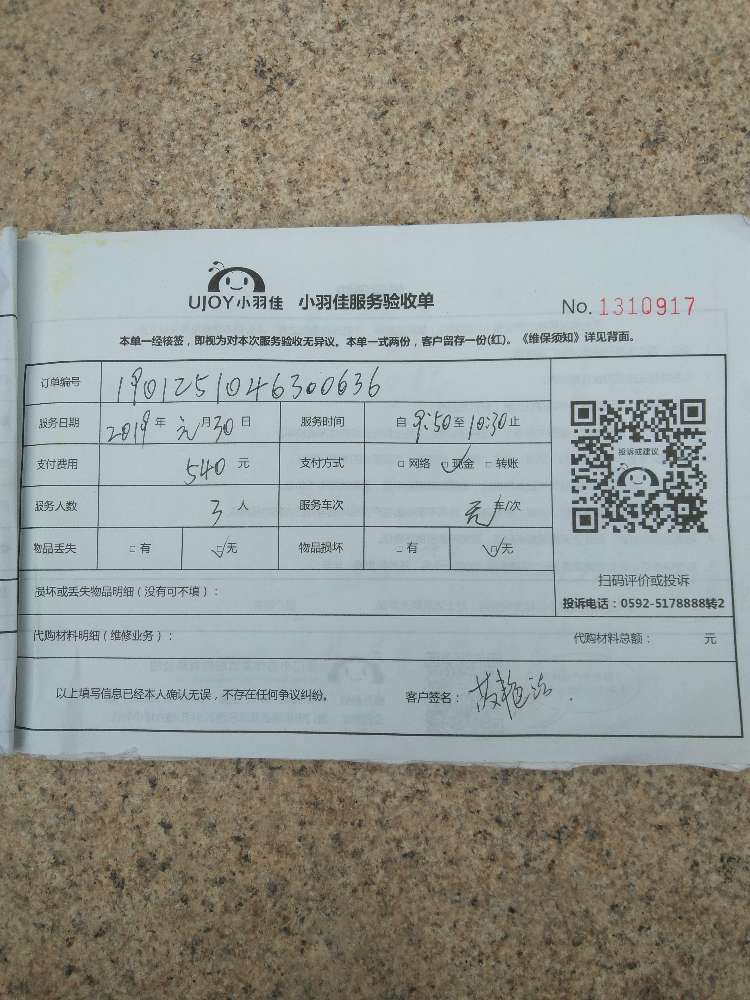 UJOY小羽佳 小羽佳服务验收单 No.1310917
本单一经核签，即视为对本次服务验收无异议。本单一式两份，客户留存一份(红)。《维保须知》详见背面。
订单编号 1901251046300636
服务日期 2019年元月30日 服务时间 自9:50至10:30止
支付费用 540元 支付方式 □网络 ☑现金 □转账
服务人数 3人 服务车次 车/次
物品丢失 □有 ☑无 物品损坏 □有 ☑无
投诉或建议
扫码评价或投诉
投诉电话：0592-5178888转2
损坏或丢失物品明细（没有可不填）：
代购材料明细（维修业务）： 代购材料总额： 元
以上填写信息已经本人确认无误，不存在任何争议纠纷。 客户签名：